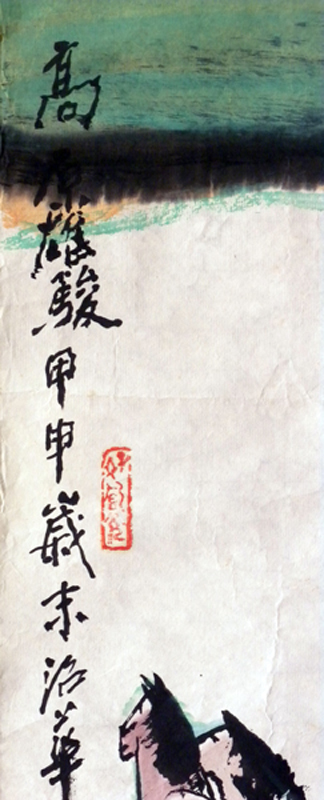 高原雄駿甲申歲末治華